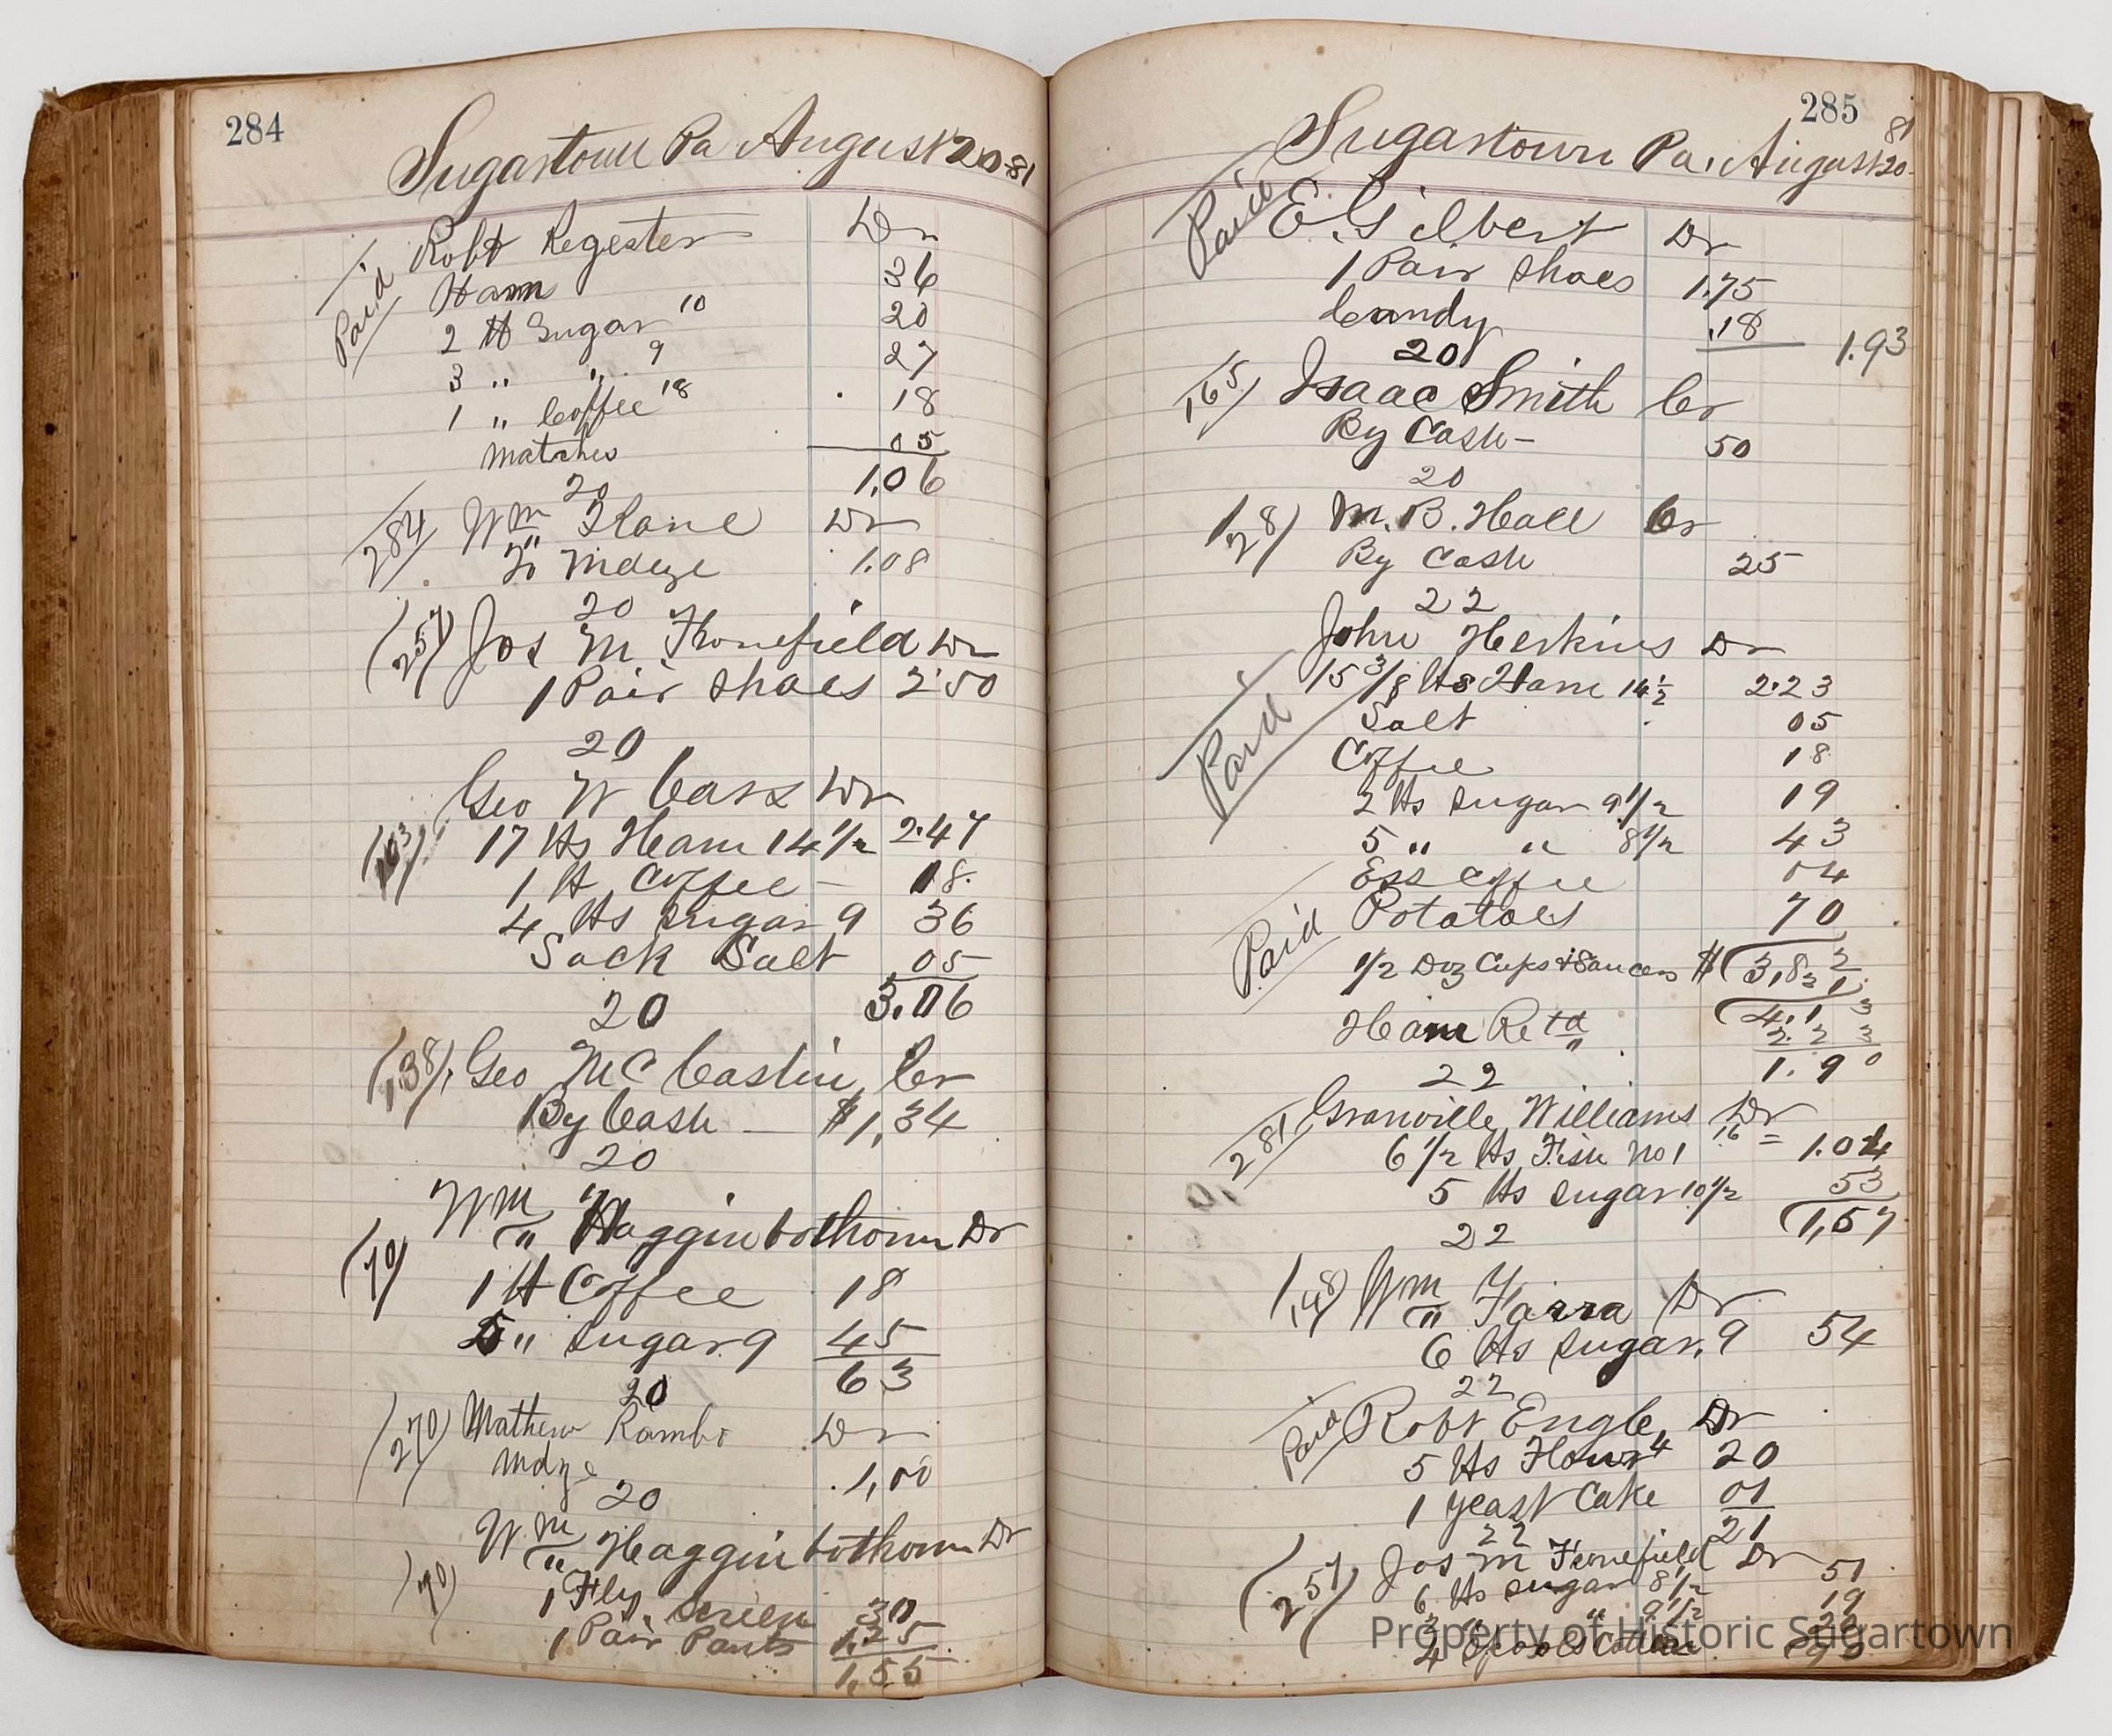 284
Sugartown Pa August 20-81
Robt Regester Dr
Paid
Ham 36
2 lb Sugar 10 20
3 " " 9 27
1 " Coffee 18 18
Matches 05
20 1.06
284 Wm Kane Dr
To Mdze 1.08
20
(257) Jos M Dr
1 Pair Shoes 2.50
20
Geo W Cass Dr
(103) 17 lbs Ham 14 1/2 2.47
1 lb Coffee 18
4 lbs Sugar 9 36
Sack Salt 05
20 3.06
(138) Geo McCaslin Cr
By Cash $1,34
20
Wm Hagginbothom Dr
(70)
1 lb Coffee 18
5 " Sugar 9 45
63
20
(270) Mathew Rambo Dr
Mdze 1,00
20
Wm Hagginbothom Dr
(70)
1 Fly Screen 30
1 Pair Pants 1.25
1,55
285
Sugartown Pa. August 20 81
Paid E. Gilbert Dr
1 Pair Shoes 1.75
Candy .18 1.93
20
165 Isaac Smith Cr
By Cash 50
20
128) M. B. Hall Cr
By Cash 25
22
John Herkins Dr
15 3/8 lbs Ham 14 1/2 2.23
Paid
Salt 05
Coffee 18
2 lbs Sugar 9 1/2 19
5 " " 8 1/2 43
Ess Coffee 04
Paid
Potatoes 70
1/2 Doz Cups & Saucers $ (3,82
(4.13
Ham Retd 2.23
22 1.90
281 Granville Williams Dr
6 1/2 lbs Fish No 1 16 = 1.04
5 lbs Sugar 10 1/2 53
22 (1,57
(148) Wm Farra Dr
6 lbs Sugar. 9 54
22
Paid Robt Engle, Dr
5 lbs Flour 4 20
1 Yeast Cake 01
22 21
(257) Jos M Dr
6 lbs Sugar 8 1/2 51
2 " " 9 1/2 19
4 Spools Cotton
Property of Historic Sugartown